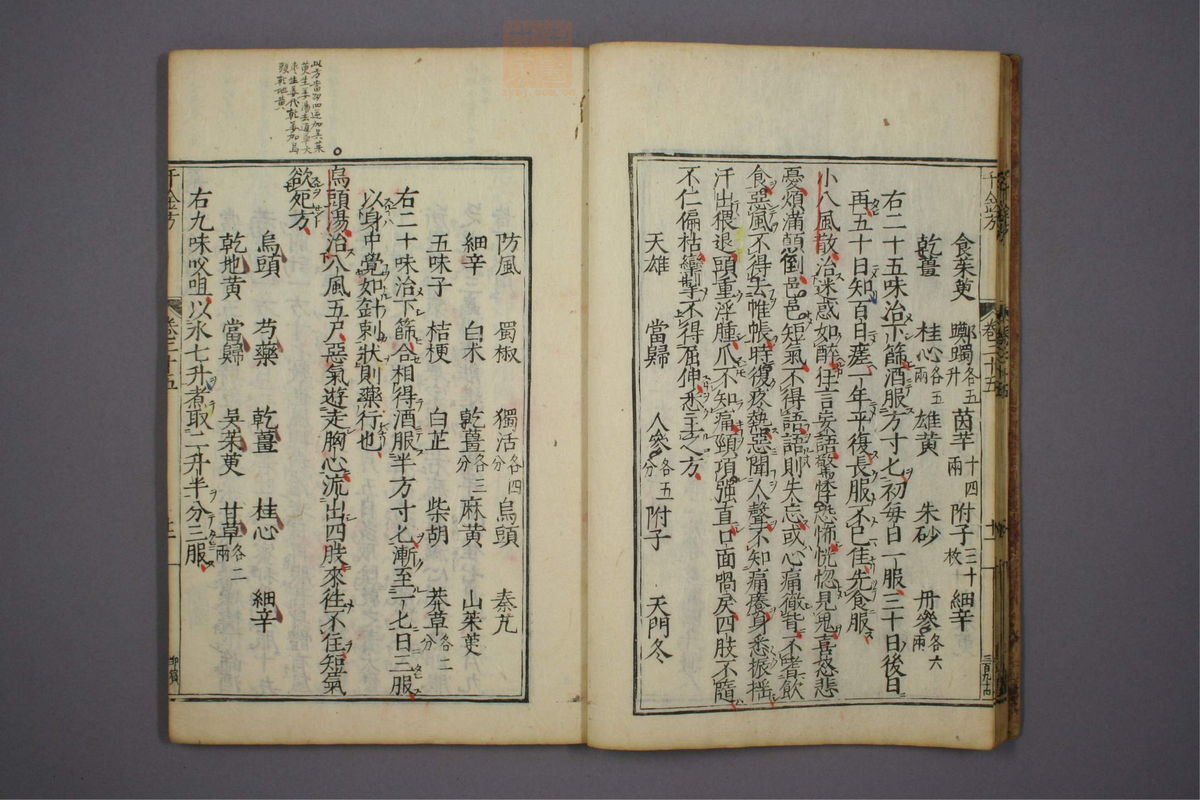 食茱萸 躑躅各五升 茵芋十四兩 附子三十枚 細辛
乾薑 桂心各五兩 雄黃 朱砂 丹參各六兩
右二十五味治下篩酒服方寸匕初每日一服三十日後日
再五十日知百日差一年平復長服不已佳先食服
小八風散治迷惑如醉狂言妄語驚悸恐怖恍惚見鬼喜怒悲
憂煩滿顛倒邑邑短氣不得語語則失忘或心痛徹背不嗜飲
食惡風不得去帷帳時復疼熱惡聞人聲不知痛癢身悉振搖
汗出猥退頭重浮腫爪不知痛頸項強直口面喎戾四肢不隨
不仁偏枯攣掣不得屈伸悉主之方
天雄 當歸 人參各五分 附子 天門冬
千金方 卷二十五
三百九十四
防風 蜀椒 獨活各四分 烏頭 秦艽
細辛 白朮 乾薑各三分 麻黃 山茱萸
五味子 桔梗 白芷 柴胡 莽草各二分
右二十味治下篩合相得酒服半方寸匕漸至一匕日三服
以身中覺如針刺狀則藥行也
烏頭湯治八風五尸惡氣遊走胸心流出四肢來往不住短氣
欲死方
烏頭 芍藥 乾薑 桂心 細辛
乾地黃 當歸 吳茱萸 甘草各二兩
右九味㕮咀以水七升煮取二升半分三服
千金方 卷二十五